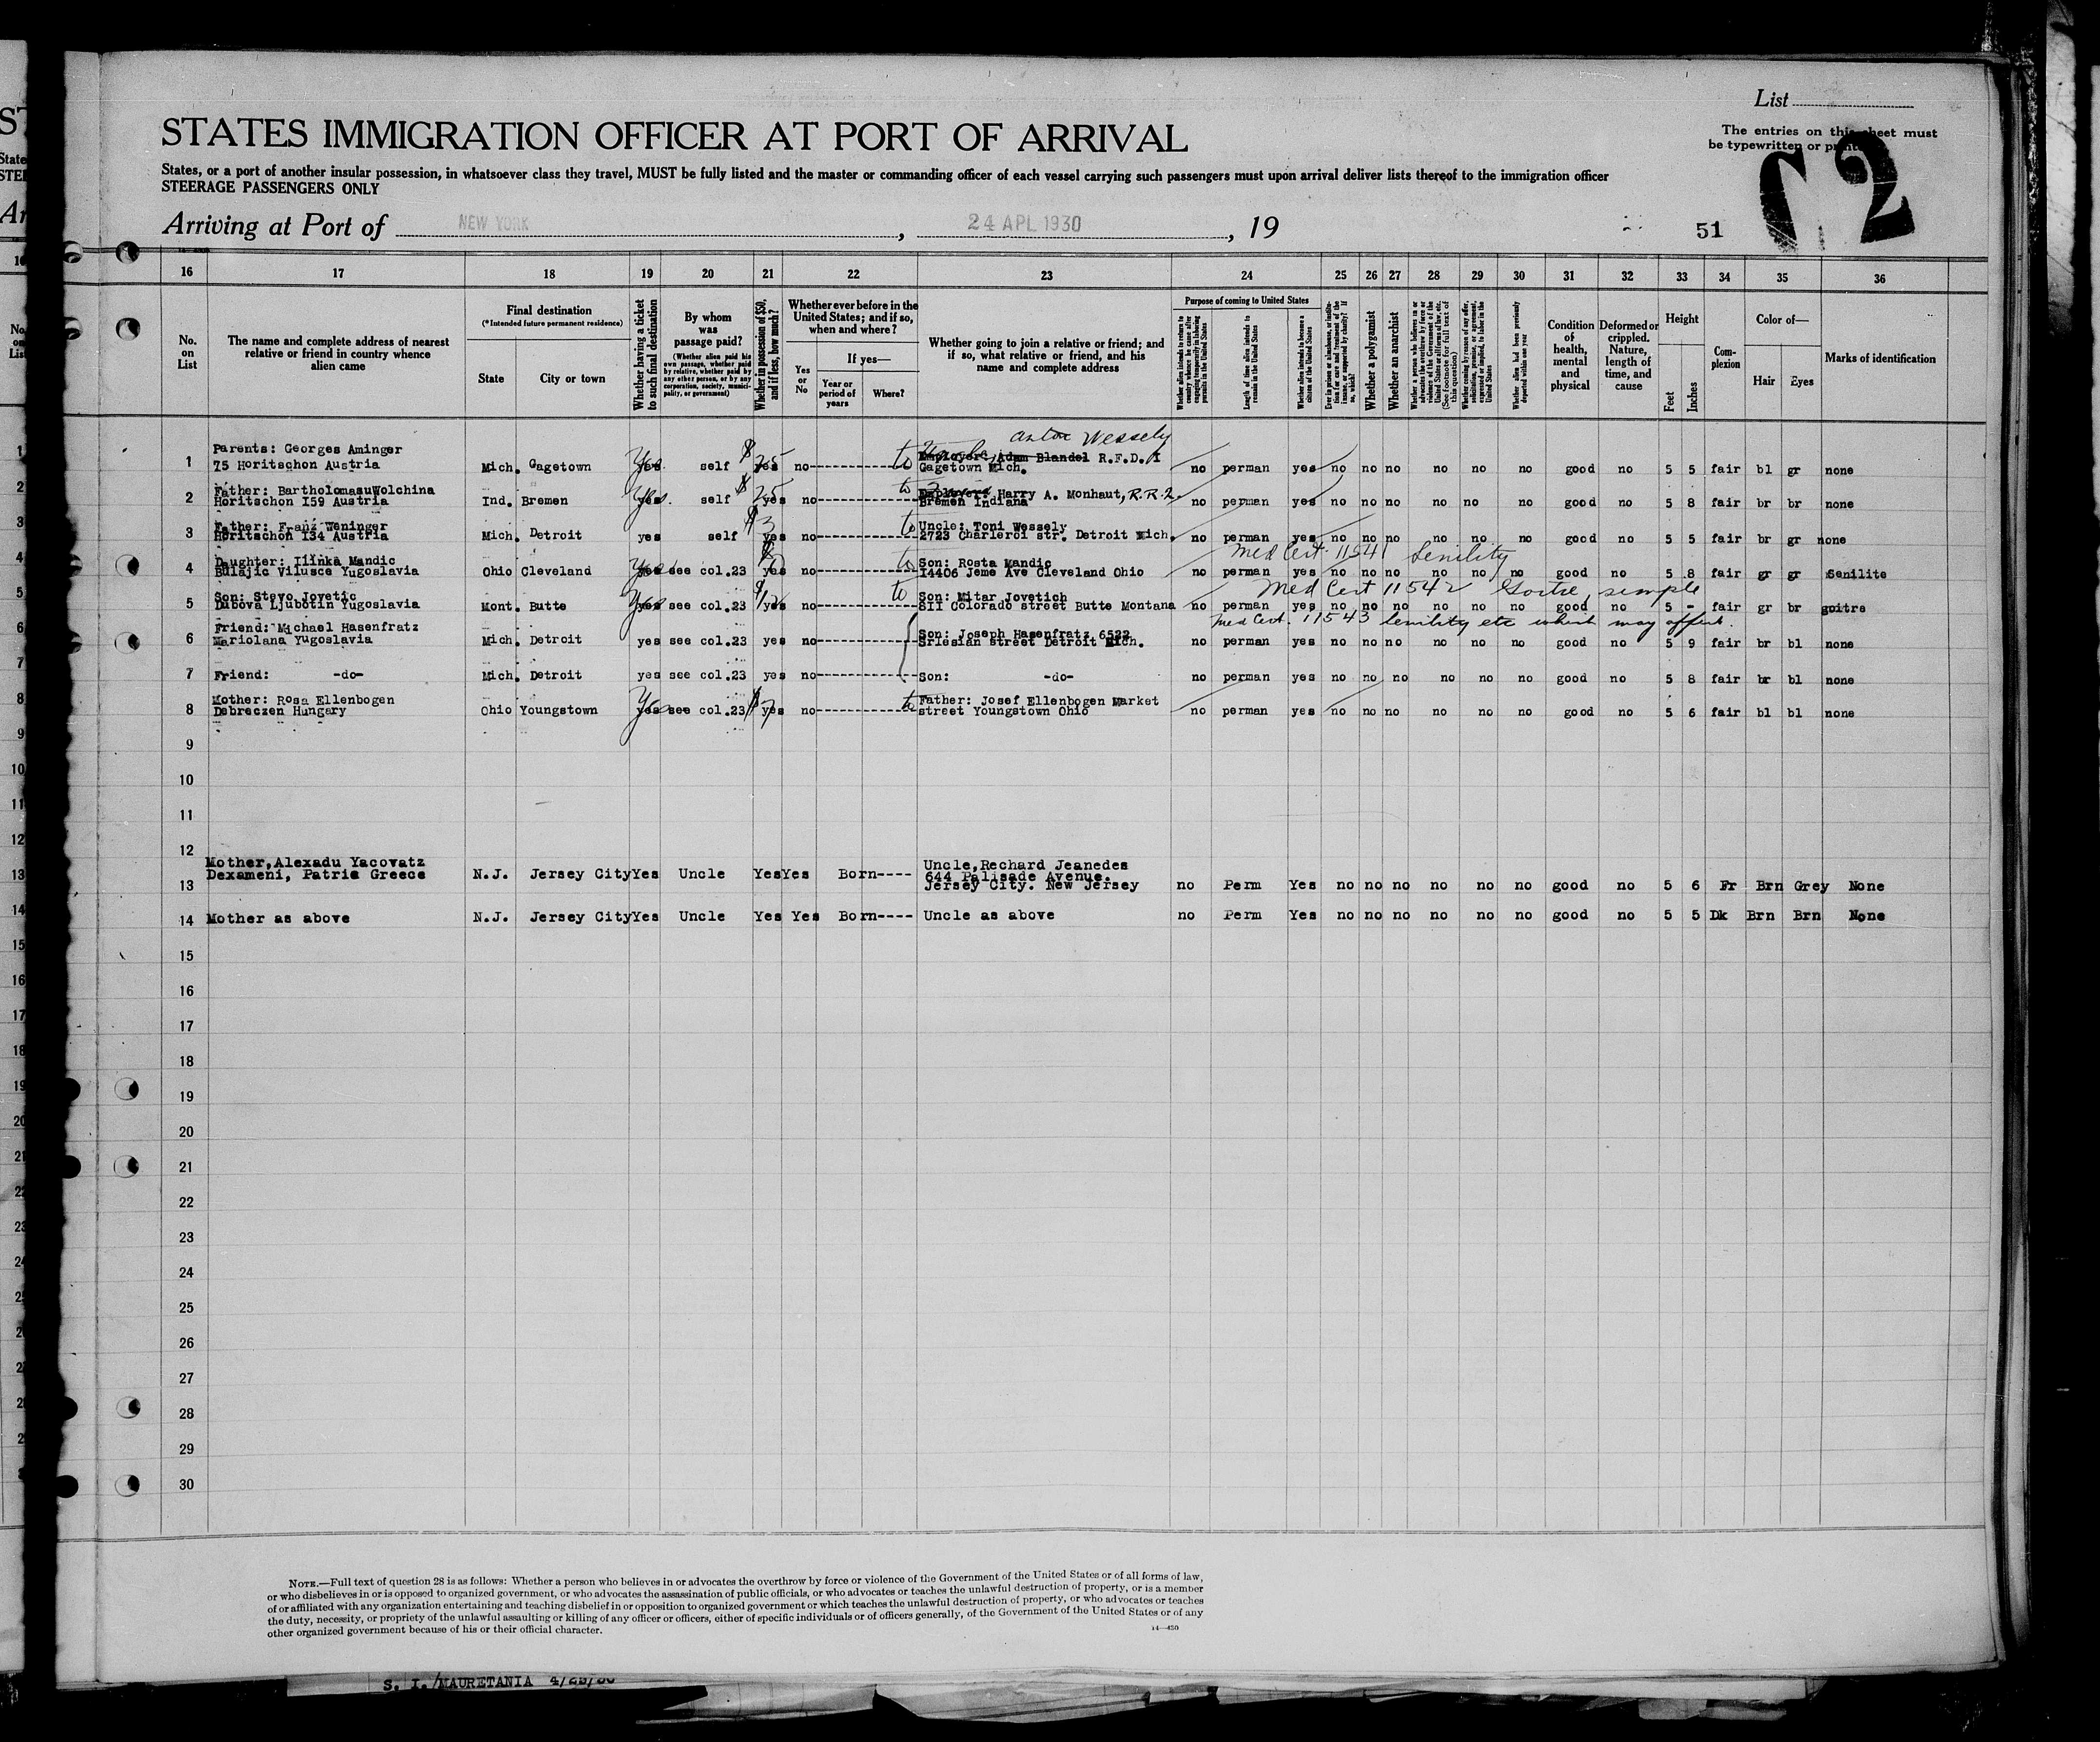 List
The entries on this sheet must
be typewritten or printed
STATES IMMIGRATION OFFICER AT PORT OF ARRIVAL
States, or a port of another insular possession, in whatsoever class they travel, MUST be fully listed and the master or commanding officer of each vessel carrying such passengers must upon arrival deliver lists thereof to the immigration officer
STEERAGE PASSENGERS ONLY
Arriving at Port of NEW YORK, 24 APL 1930, 19
51
16 17 18 19 20 21 22 23 24 25 26 27 28 29 30 31 32 33 34 35 36
No.
on
List
The name and complete address of nearest
relative or friend in country whence
alien came
Final destination
(*Intended future permanent residence)
State
City or town
Whether having a ticket
to such final destination
By whom
was
passage paid?
(Whether alien paid his
own passage, whether paid
by relative, whether paid by
any other person, or by any
corporation, society, munici-
pality, or government)
Whether in possession of $50,
and if less, how much?
Whether ever before in the
United States; and if so,
when and where?
Yes
or
No
If yes—
Year or
period of
years
Where?
Whether going to join a relative or friend; and
if so, what relative or friend, and his
name and complete address
Purpose of coming to United States
Length of time alien intends to
remain in the United States
Whether alien intends to become a
citizen of the United States
Whether a polygamist
Whether an anarchist
Whether alien had been previously
deported within one year
Condition
of
health,
mental
and
physical
Deformed or
crippled.
Nature,
length of
time, and
cause
Height
Feet
Inches
Com-
plexion
Color of—
Hair
Eyes
Marks of identification
Anton Wessely
Parents: Georges Aminger
Employer: Adam Blandel R.F.D. I
1 75 Horitschon Austria Mich. Gagetown yes self $25 yes no to Gagetown Mich. no perman yes no no no no no no good no 5 5 fair bl gr none
Father: BartholomasuWolchina
Employer: Harry A. Monhaut, R.R.2.
2 Horitschon I59 Austria Ind. Bremen yes self $25 yes no to Bremen Indiana no perman yes no no no no no no good no 5 8 fair br br none
Father: Franz Weninger
Uncle: Toni Wessely
3 Horitschon I34 Austria Mich. Detroit yes self yes no to 2723 Charleroi str. Detroit Mich. no perman yes no no no no no no good no 5 5 fair br gr none
Med Cert. 11541 Senility
Daughter: Ilinka Mandic
Son: Rosta Mandic
4 Bulajic Vilusce Yugoslavia Ohio Cleveland yes see col.23 yes no to I4406 Jeme Ave Cleveland Ohio no perman yes no no no no no no good no 5 8 fair gr gr Senilite
Med Cert 11542 Goitre, simple
Son: Stevo Jovetic
Son: Mitar Jovetich
5 Dubova Ljubotin Yugoslavia Mont. Butte yes see col.23 $12 yes no to 8II Colorado street Butte Montana no perman yes no no no no no no good no 5 - fair gr br goitre
Med Cert. 11543 Senility etc which may affect.
Friend: Michael Hasenfratz
Son: Joseph Hasenfratz 6522
6 Mariolana Yugoslavia Mich. Detroit yes see col.23 yes no Sriesian street Detroit Mich. no perman yes no no no no no no good no 5 9 fair br bl none
7 Friend: -do- Mich. Detroit yes see col.23 yes no Son: -do- no perman yes no no no no no no good no 5 8 fair br bl none
Mother: Rosa Ellenbogen
Father: Josef Ellenbogen Market
8 Debreczen Hungary Ohio Youngstown yes see col.23 yes no to street Youngstown Ohio no perman yes no no no no no no good no 5 6 fair bl bl none
9
10
11
12
Mother,Alexadu Yacovatz
Uncle,Rechard Jeanedes
Dexameni, Patria Greece N.J. Jersey City Yes Uncle Yes Yes Born---- 644 Palisade Avenue.
13 Jersey City. New Jersey no Perm Yes no no no no no no good no 5 6 Fr Brn Grey None
14 Mother as above N.J. Jersey City Yes Uncle Yes Yes Born---- Uncle as above no Perm Yes no no no no no no good no 5 5 Dk Brn Brn None
15
16
17
18
19
20
21
22
23
24
25
26
27
28
29
30
NOTE.—Full text of question 28 is as follows: Whether a person who believes in or advocates the overthrow by force or violence of the Government of the United States or of all forms of law,
or who disbelieves in or is opposed to organized government, or who advocates the assassination of public officials, or who advocates or teaches the unlawful destruction of property, or is a member
of or affiliated with any organization entertaining and teaching disbelief in or opposition to organized government or which teaches the unlawful destruction of property, or who advocates or teaches
the duty, necessity, or propriety of the unlawful assaulting or killing of any officer or officers, either of specific individuals or of officers generally, of the Government of the United States or of any
other organized government because of his or their official character.
14—430
S. I. MAURETANIA